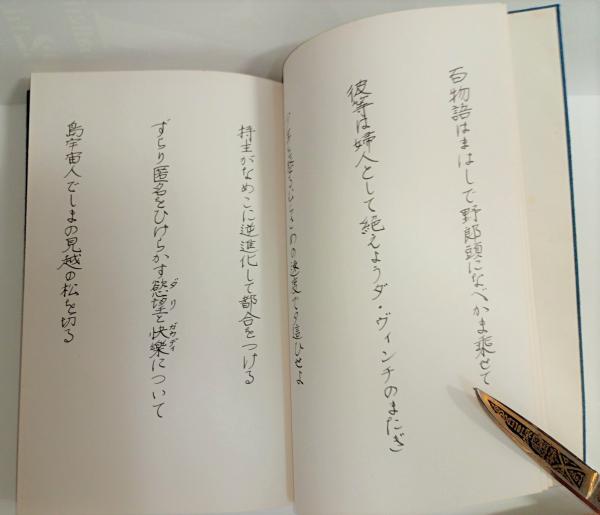 百物語はまはしで野郎頭になべかま乗せて
彼等は婦人として絶えようダ・ヴィンチのまたぎ
持主がなめこに逆進化して都合をつける
ずらり匿名をひけらかす慾望と快樂について
ダリ ガウディ
島宇宙人でしまの見越の松を切る